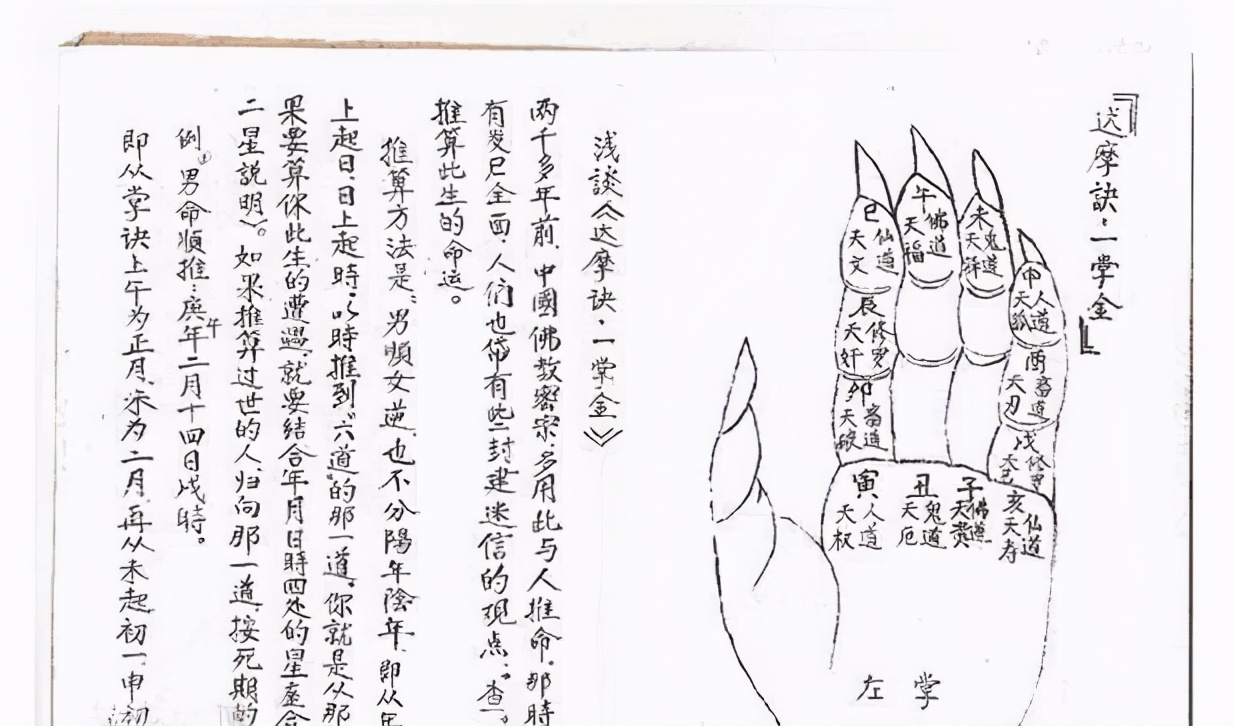 『达摩訣·一掌金』
巳 仙道 天文
午 佛道 天福
未 鬼道 天驿
申 人道 天孤
辰 修罗 天奸
酉 畜道 天刃
卯 畜道 天破
戌 修
寅 人道 天权
丑 鬼道 天厄
子 佛道 天贵
亥 仙道 天寿
左掌
浅談《达摩诀·一掌金》
两千多年前，中國佛教密宗，多用此与人推命。那時
有炎巳全面，人们也带有些封建迷信的观点，查
推算此生的命运。
推算方法是：男順女逆，也不分陽年陰年，即从年
上起日，日上起時，以時推到"六道"的那一道，你就是从那
果要算你此生的遭遇，就要结合年月日時四处的星座合
二星説明。如果推算过世的人，归向那一道，按死期的
例①男命順推：庚午年二月十四日戌時。
即从掌诀上午为正月，未为二月，再从未起初一，申初